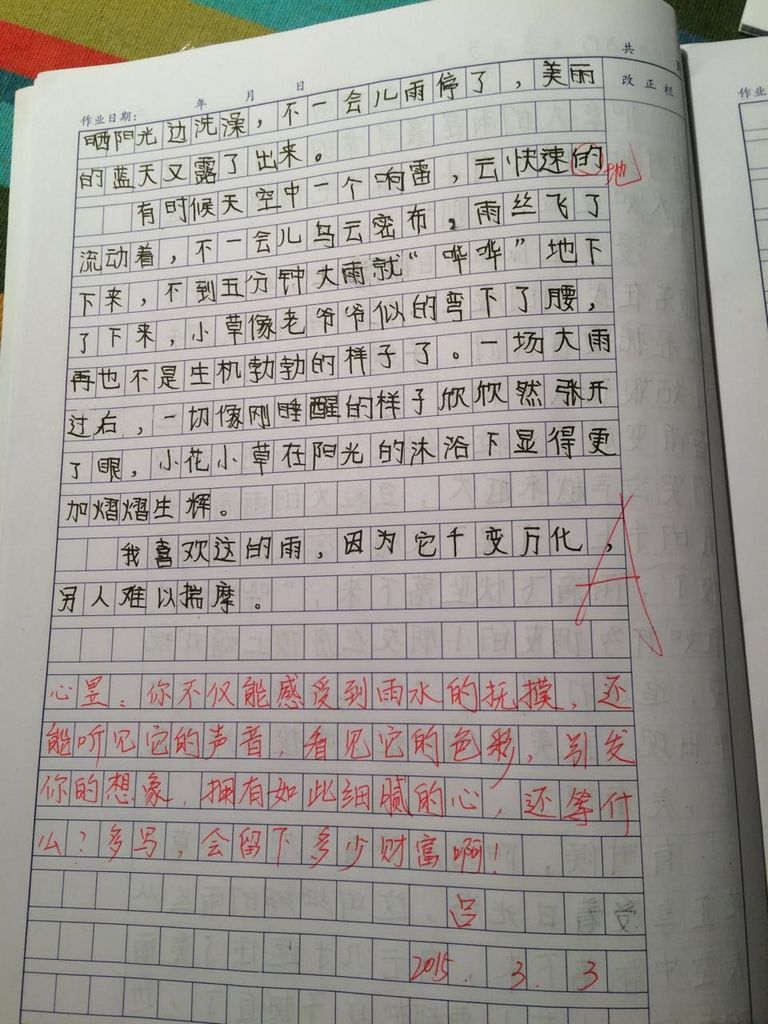 共
作业日期: 年 月 日
改正栏
晒阳光边洗澡，不一会儿雨停了，美丽
的蓝天又露了出来。
有时候天空中一个响雷，云快速的
地
流动着，不一会儿乌云密布，雨丝飞了
下来，不到五分钟大雨就“哗哗”地下
了下来，小草像老爷爷似的弯下了腰，
再也不是生机勃勃的样子了。一场大雨
过后，一切像刚睡醒的样子欣欣然张开
了眼，小花小草在阳光的沐浴下显得更
加熠熠生辉。
我喜欢这的雨，因为它千变万化，
另人难以揣摩。
A
心昱：你不仅能感受到雨水的抚摸，还
能听见它的声音，看见它的色彩，引发
你的想象，拥有如此细腻的心，还等什
么？多写，会留下多少财富啊！
吕
2015. 3. 3
作业